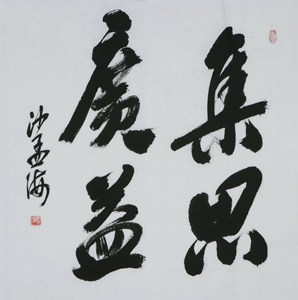 集思
廣益
沙孟海